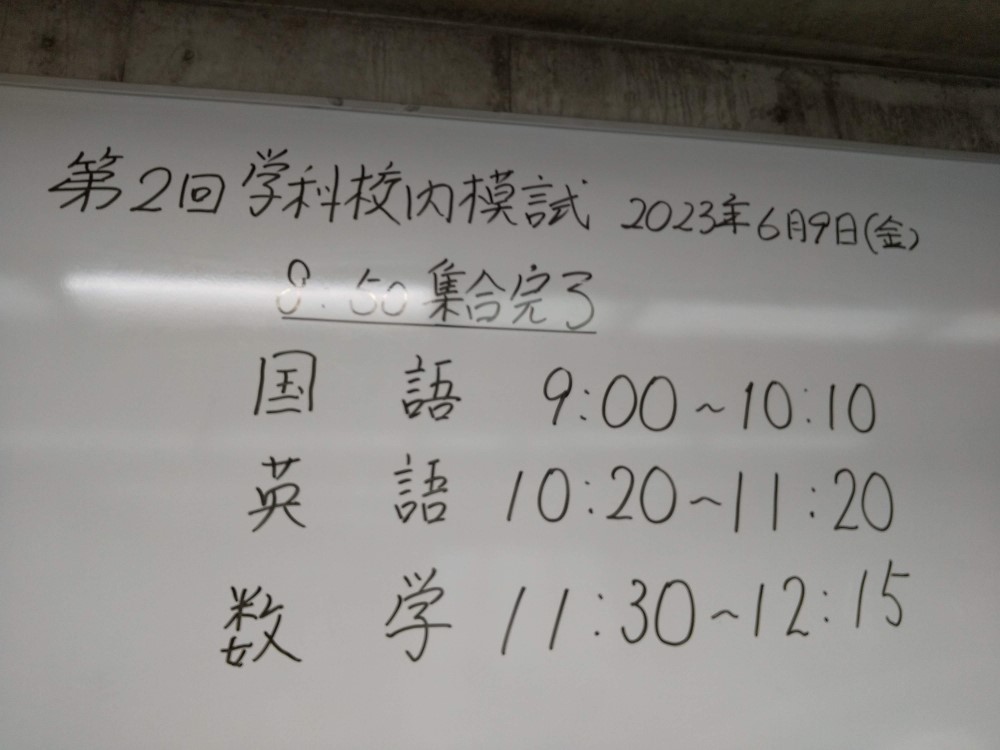 第2回学科校内模試 2023年6月9日(金)
8:50 集合完了
国 語 9:00~10:10
英 語 10:20~11:20
数 学 11:30~12:15